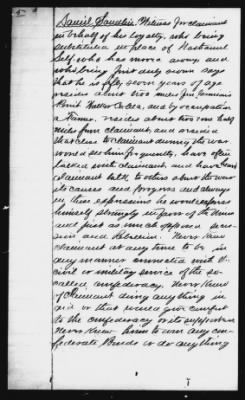 Daniel Witness for claimant
in behalf of his loyalty, who being
substituted in place of Nathaniel
Self, who has moved away and
who being first duly sworn says
that he is fifty seven years of age
resides about two miles from
Point Walker Co Ala, and by occupation
a Farmer. resides about two and half
miles from claimant, and resided
that close to claimant during the war
would see him frequently, have often
talked with claimant, and have heard
claimant talk to others about the war
its causes and progress and always
in these expressions he would express
himself strongly in favor of the Union
and just as much opposed
and Rebellion. Never knew
claimant at any time to be in
any manner connected with the
civil or military service of the so
called confederacy. Never knew
of claimant doing anything in
aid or that would give comfort
to the confederacy or its supporters
Never knew him to own any con-
federate Bonds or do anything